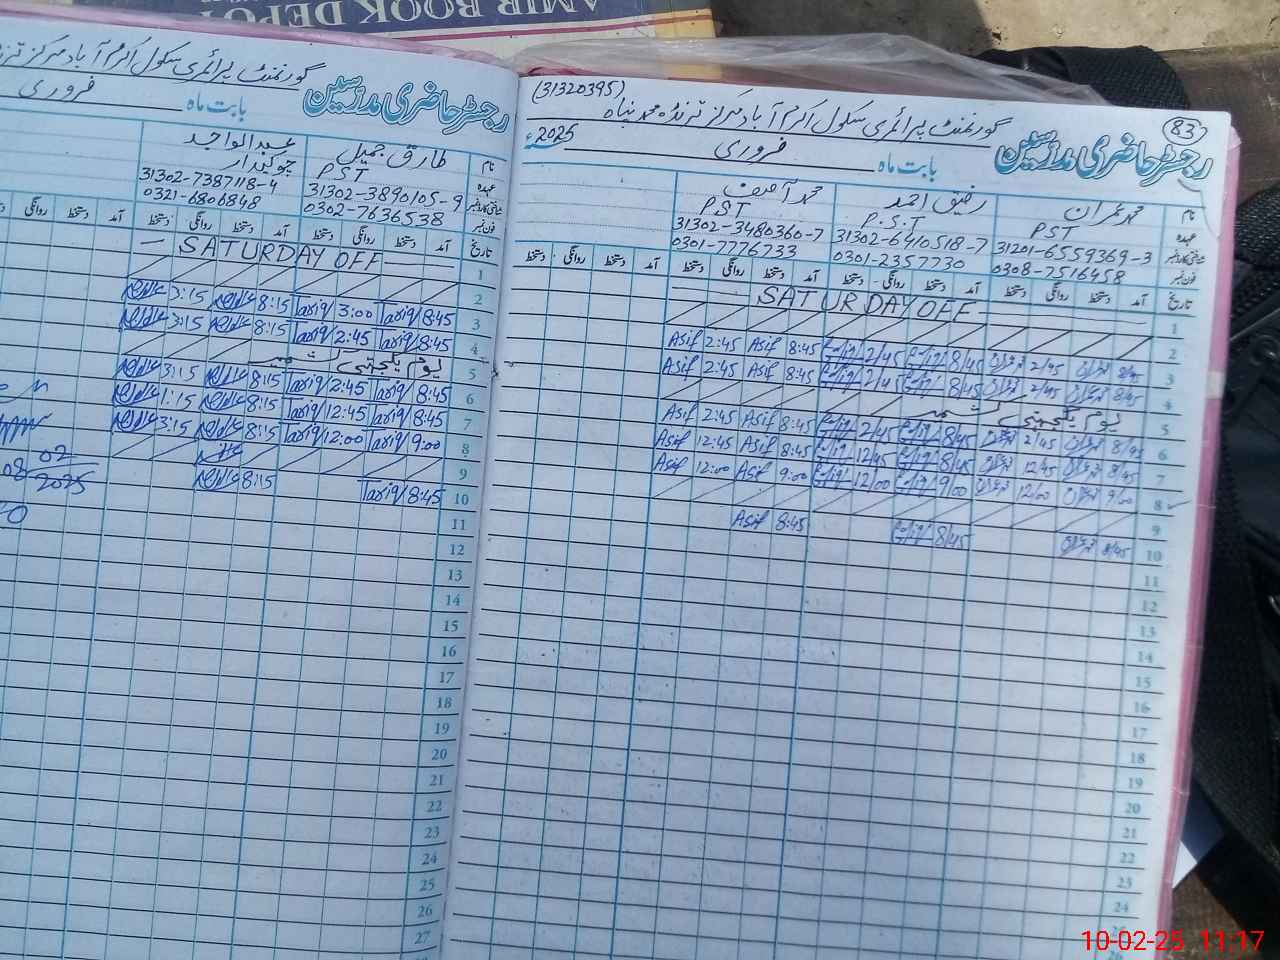 AMIR BOOK DEPOT
(31320395)
83
رجسٹر حاضری مدرسین
گورنمنٹ پرائمری سکول اکرم آباد مرکز ترنڈہ محمد پناہ
بابت ماہ فروری 2025ء
نام محمد عمران رفیق احمد محمد آصف
عہدہ PST P.S.T PST
شناختی کارڈ نمبر 31201-6559369-3 31302-6410518-7 31302-3480360-7
فون نمبر 0308-7516458 0301-2357730 0301-7776733
تاریخ آمد دستخط روانگی دستخط آمد دستخط روانگی دستخط آمد دستخط روانگی دستخط آمد دستخط روانگی دستخط
1 SATURDAY OFF
2
3 8/45 عمران 2/45 عمران 8/45 2/45 8:45 Asif 2:45 Asif
4 8/45 عمران 2/45 عمران 8/45 2/45 8:45 Asif 2:45 Asif
5 یوم یکجہتی کشمیر
6 8/45 عمران 2/45 عمران 8/45 2/45 8:45 Asif 2:45 Asif
7 8/45 عمران 12/45 عمران 8/45 12/45 8:45 Asif 12:45 Asif
8 9/00 عمران 12/00 عمران 9/00 12/00 9:00 Asif 12:00 Asif
9
10 8/45 عمران 8/45 8:45 Asif
11
12
13
14
15
16
17
18
19
20
21
22
23
24
25
26
رجسٹر حاضری مدرسین
گورنمنٹ پرائمری سکول اکرم آباد مرکز
بابت ماہ فروری
نام طارق جمیل عبدالواجد
عہدہ PST چوکیدار
شناختی کارڈ نمبر 31302-3890105-9 31302-7387118-4
فون نمبر 0302-7636538 0321-6806848
تاریخ آمد دستخط روانگی دستخط آمد دستخط روانگی دستخط آمد دستخط روانگی
1 SATURDAY OFF
2
3 8:45 Tariq 3:00 Tariq 8:15 3:15
4 8:45 Tariq 2:45 Tariq 8:15 3:15
5 یوم یکجہتی کشمیر
6 8:45 Tariq 2:45 Tariq 8:15 3:15
7 8:45 Tariq 12:45 Tariq 8:15 1:15
8 9:00 Tariq 12:00 Tariq 8:15 3:15
9
10 8:45 Tariq 8:15
11
12
13
14
15
16
17
18
19
20
21
22
23
24
25
26
27
08 02
2025
10-02-25 11:17